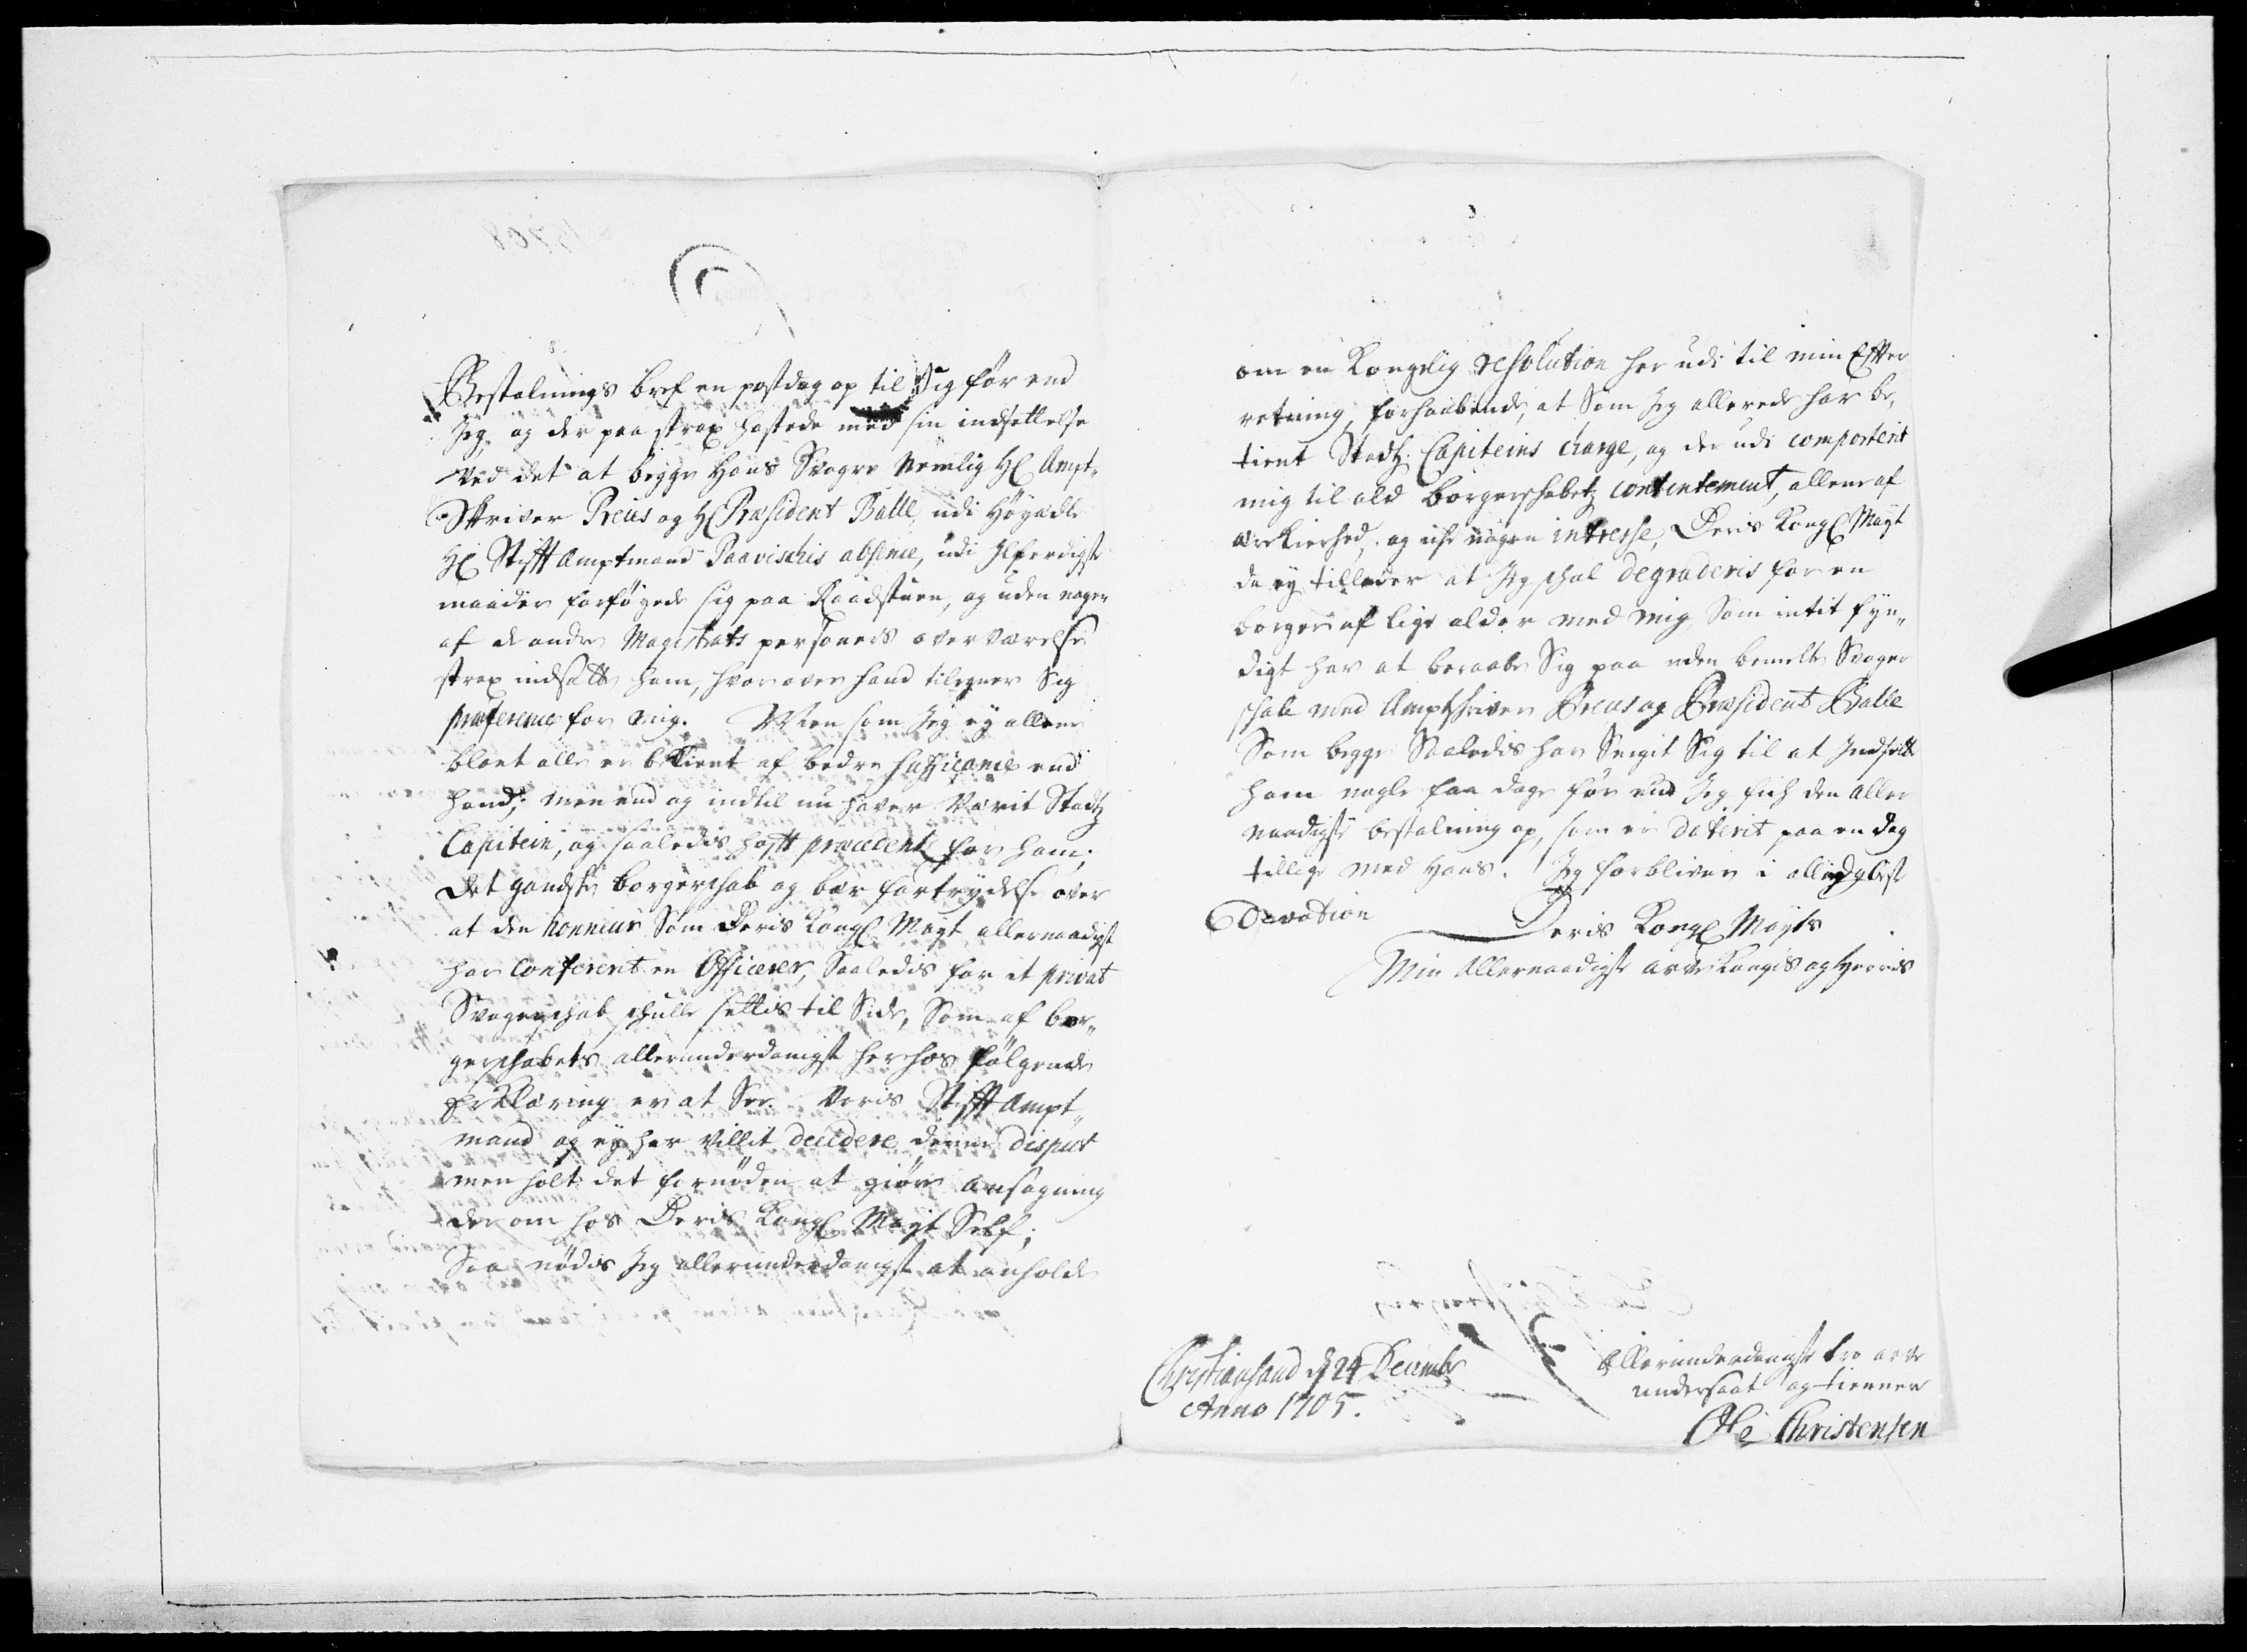 Bestalnings bref en postdag op til Sig før end
Jeg, og der paa strax hastede med sin indsettelse
Ved det at begge Hans Svogre Nemlig Hr Ampt-
Skriver Preus og Hr Præsident Balle, udi Høyædle
Hr Stifft Amptmand Paavischis absence, udi Ilferdigste
maader forføyede sig paa Raadstuen, og uden nogen
af de andre Magistrats personers overværelse
strax indsatte ham, hvor over hand tilegner Sig
præference for mig. Men som Jeg ey allene
blant alle er bekient af bedre suffisance end
hand; men end og indtil nu haver Værit Stadtz
Capitein, og saaledis hafft præcedentz for ham;
Det gandske borgerskab og bær fortrydelse over
at den honneur Som Deris Kongl Mayt allernaadigst
har Confererit en Officerer, Saaledis for et privat
Svogerskab skulle settis til Side, Som af bor-
gerskabets allerunderdanigst herhos følgende
Erklæring er at See. Voris Stifft Ampt-
mand og ey har Villit decidere denne disput
men holt det fornøden at giøre ansøgning
der om hos Deris Kongl Mayt Self;
Saa nødis Jeg allerunderdanigst at anholde
om en Kongelig resolution her udi til min Effter
retning, forhaabende, at Som Jeg allerede har be-
tient Stadtz Capiteins charge, og der udi comporterit
mig til ald borgerskabetz contentement, allene af
ærekierhed, og icke nogen intresse, Deris Kongl Mayt
da ey tillader at Jeg skal degraderis for en
borger af lige alder med mig, Som intet fyn-
digt har at beraabe Sig paa uden bemelte Svoger
skab med Amptskriver Preus og Præsident Balle
Som begge Saaledis har Sneget Sig til at Indsette
ham nogle faa dage før end Jeg fick den aller
naadigste bestalning op, som er daterit paa en dag
tillige med Hans. Jeg forbliver i all
Devotion
Deris Kongl Mayts
Min Allernaadigste arve Kongis og Herris
Christiansand d 24 Decembr
Anno 1705.
Allerunderdanigste tro arve
undersaat og tienner
Ole Christensen